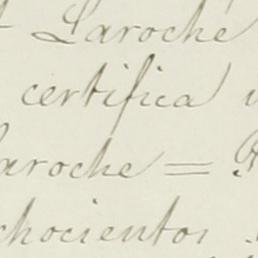 Laroche
certifica
aroche =
chocientos